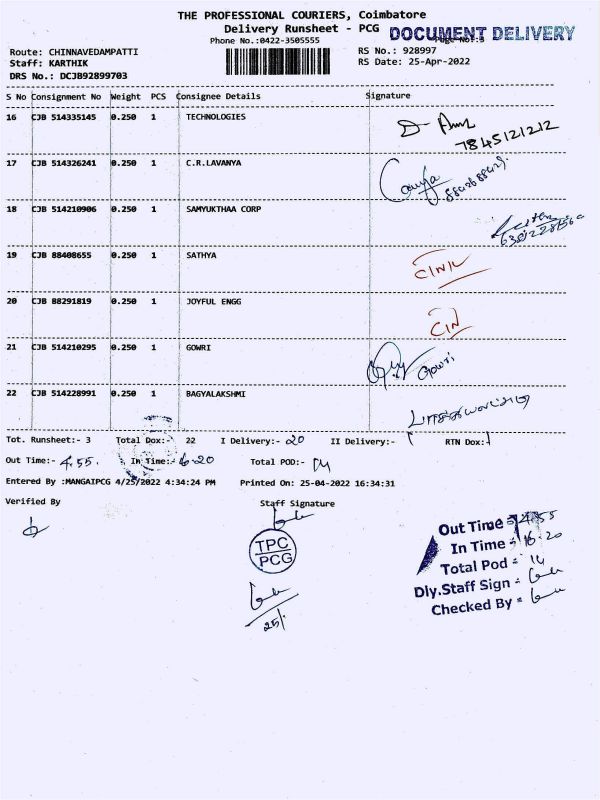 THE PROFESSIONAL COURIERS, Coimbatore
Delivery Runsheet - PCG
DOCUMENT DELIVERY
Phone No.:0422-3505555
Route: CHINNAVEDAMPATTI
RS No.: 928997
Staff: KARTHIK
RS Date: 25-Apr-2022
DRS No.: DCJB92899703
S No Consignment No Weight PCS Consignee Details Signature
16 CJB 514335145 0.250 1 TECHNOLOGIES
7845121212
17 CJB 514326241 0.250 1 C.R.LAVANYA
18 CJB 514210906 0.250 1 SAMYUKTHAA CORP
19 CJB 88408655 0.250 1 SATHYA
20 CJB 88291819 0.250 1 JOYFUL ENGG
21 CJB 514210295 0.250 1 GOWRI
Gowri
22 CJB 514228991 0.250 1 BAGYALAKSHMI
Tot. Runsheet:- 3 Total Dox:- 22 I Delivery:- 20 II Delivery:- RTN Dox:-
Out Time:- 4.55. In Time:- 6-20 Total POD:- 14
Entered By :MANGAIPCG 4/25/2022 4:34:24 PM Printed On: 25-04-2022 16:34:31
Verified By Staff Signature
TPC
PCG
25/.
Out Time = 4.55
In Time = 16.20
Total Pod = 14
Dly.Staff Sign =
Checked By =